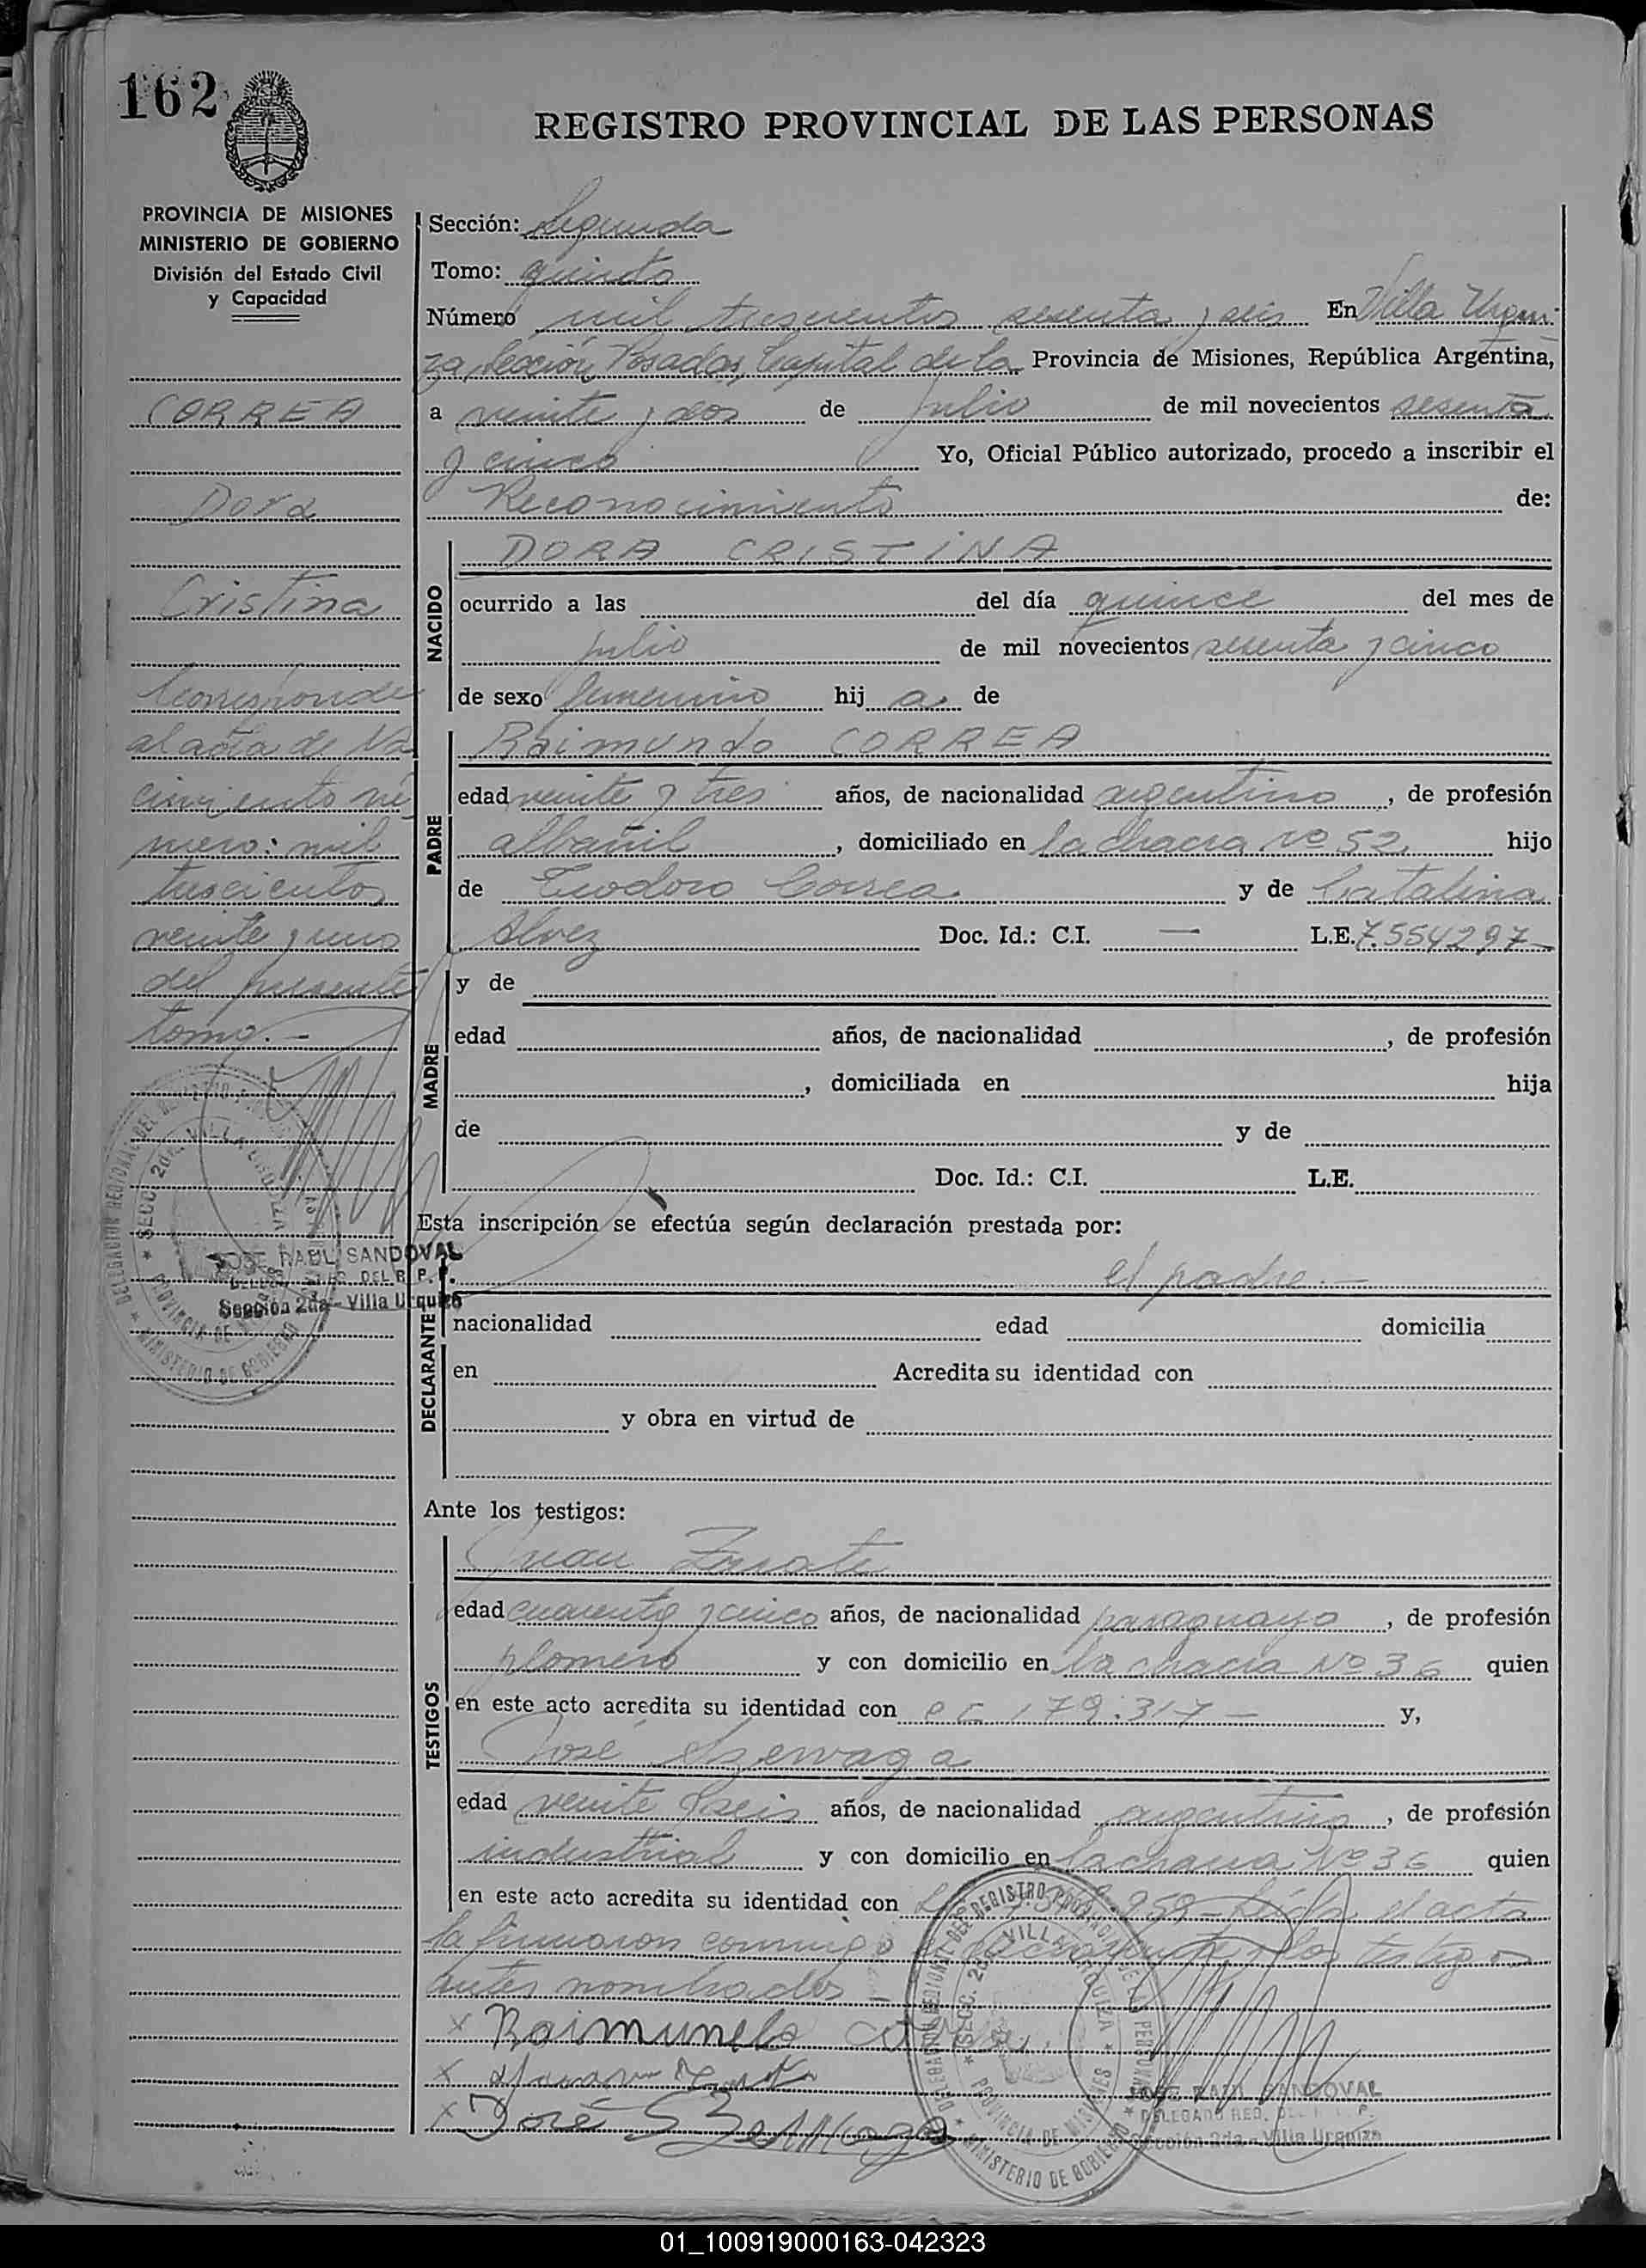 162
REGISTRO PROVINCIAL DE LAS PERSONAS
PROVINCIA DE MISIONES
MINISTERIO DE GOBIERNO
División del Estado Civil
y Capacidad
CORREA
Dora
Cristina
Corresponde
al acta de Na
cimiento nú
mero: mil
trescientos
veinte y uno
del presente
tomo.-
JOSE RAUL SANDOVAL
Sección 2da - Villa Urquiza
Sección: Segunda
Tomo: quinto
Número mil trescientos sesenta y seis En Villa Urqui-
za, Sección Posadas, Capital de la Provincia de Misiones, República Argentina,
a veinte y dos de Julio de mil novecientos sesenta
y cinco Yo, Oficial Público autorizado, procedo a inscribir el
Reconocimiento de:
NACIDO
DORA CRISTINA
ocurrido a las del día quince del mes de
julio de mil novecientos sesenta y cinco
de sexo femenino hij a de
PADRE
Raimundo CORREA
edad veinte y tres años, de nacionalidad argentino, de profesión
albañil, domiciliado en la chacra Nº 52 hijo
de Teodoro Correa y de Catalina
Alvez Doc. Id.: C.I. — L.E. 7.554297-
MADRE
y de
edad años, de nacionalidad , de profesión
, domiciliada en hija
de y de
Doc. Id.: C.I. L.E.
Esta inscripción se efectúa según declaración prestada por:
el padre.-
DECLARANTE
nacionalidad edad domicilia
en Acredita su identidad con
y obra en virtud de
Ante los testigos:
TESTIGOS
Juan
edad cuarenta y cinco años, de nacionalidad paraguayo, de profesión
plomero y con domicilio en la chacra Nº 36 quien
en este acto acredita su identidad con 179.317- y,
José Szewaga
edad veinte y seis años, de nacionalidad argentino, de profesión
industrial y con domicilio en la chacra Nº 36 quien
en este acto acredita su identidad con 959- Leída el acta
la firmaron conmigo el declarante y los testigos
antes nombrados
x Raimundo
x
x José Szewaga
DELEGACION REGIONAL DEL REGISTRO PROVINCIAL DE LAS PERSONAS
SECC. 2da. VILLA URQUIZA
PROVINCIA DE MISIONES
MINISTERIO DE GOBIERNO
JOSE RAUL SANDOVAL
Sección 2da - Villa Urquiza
01_100919000163-042323